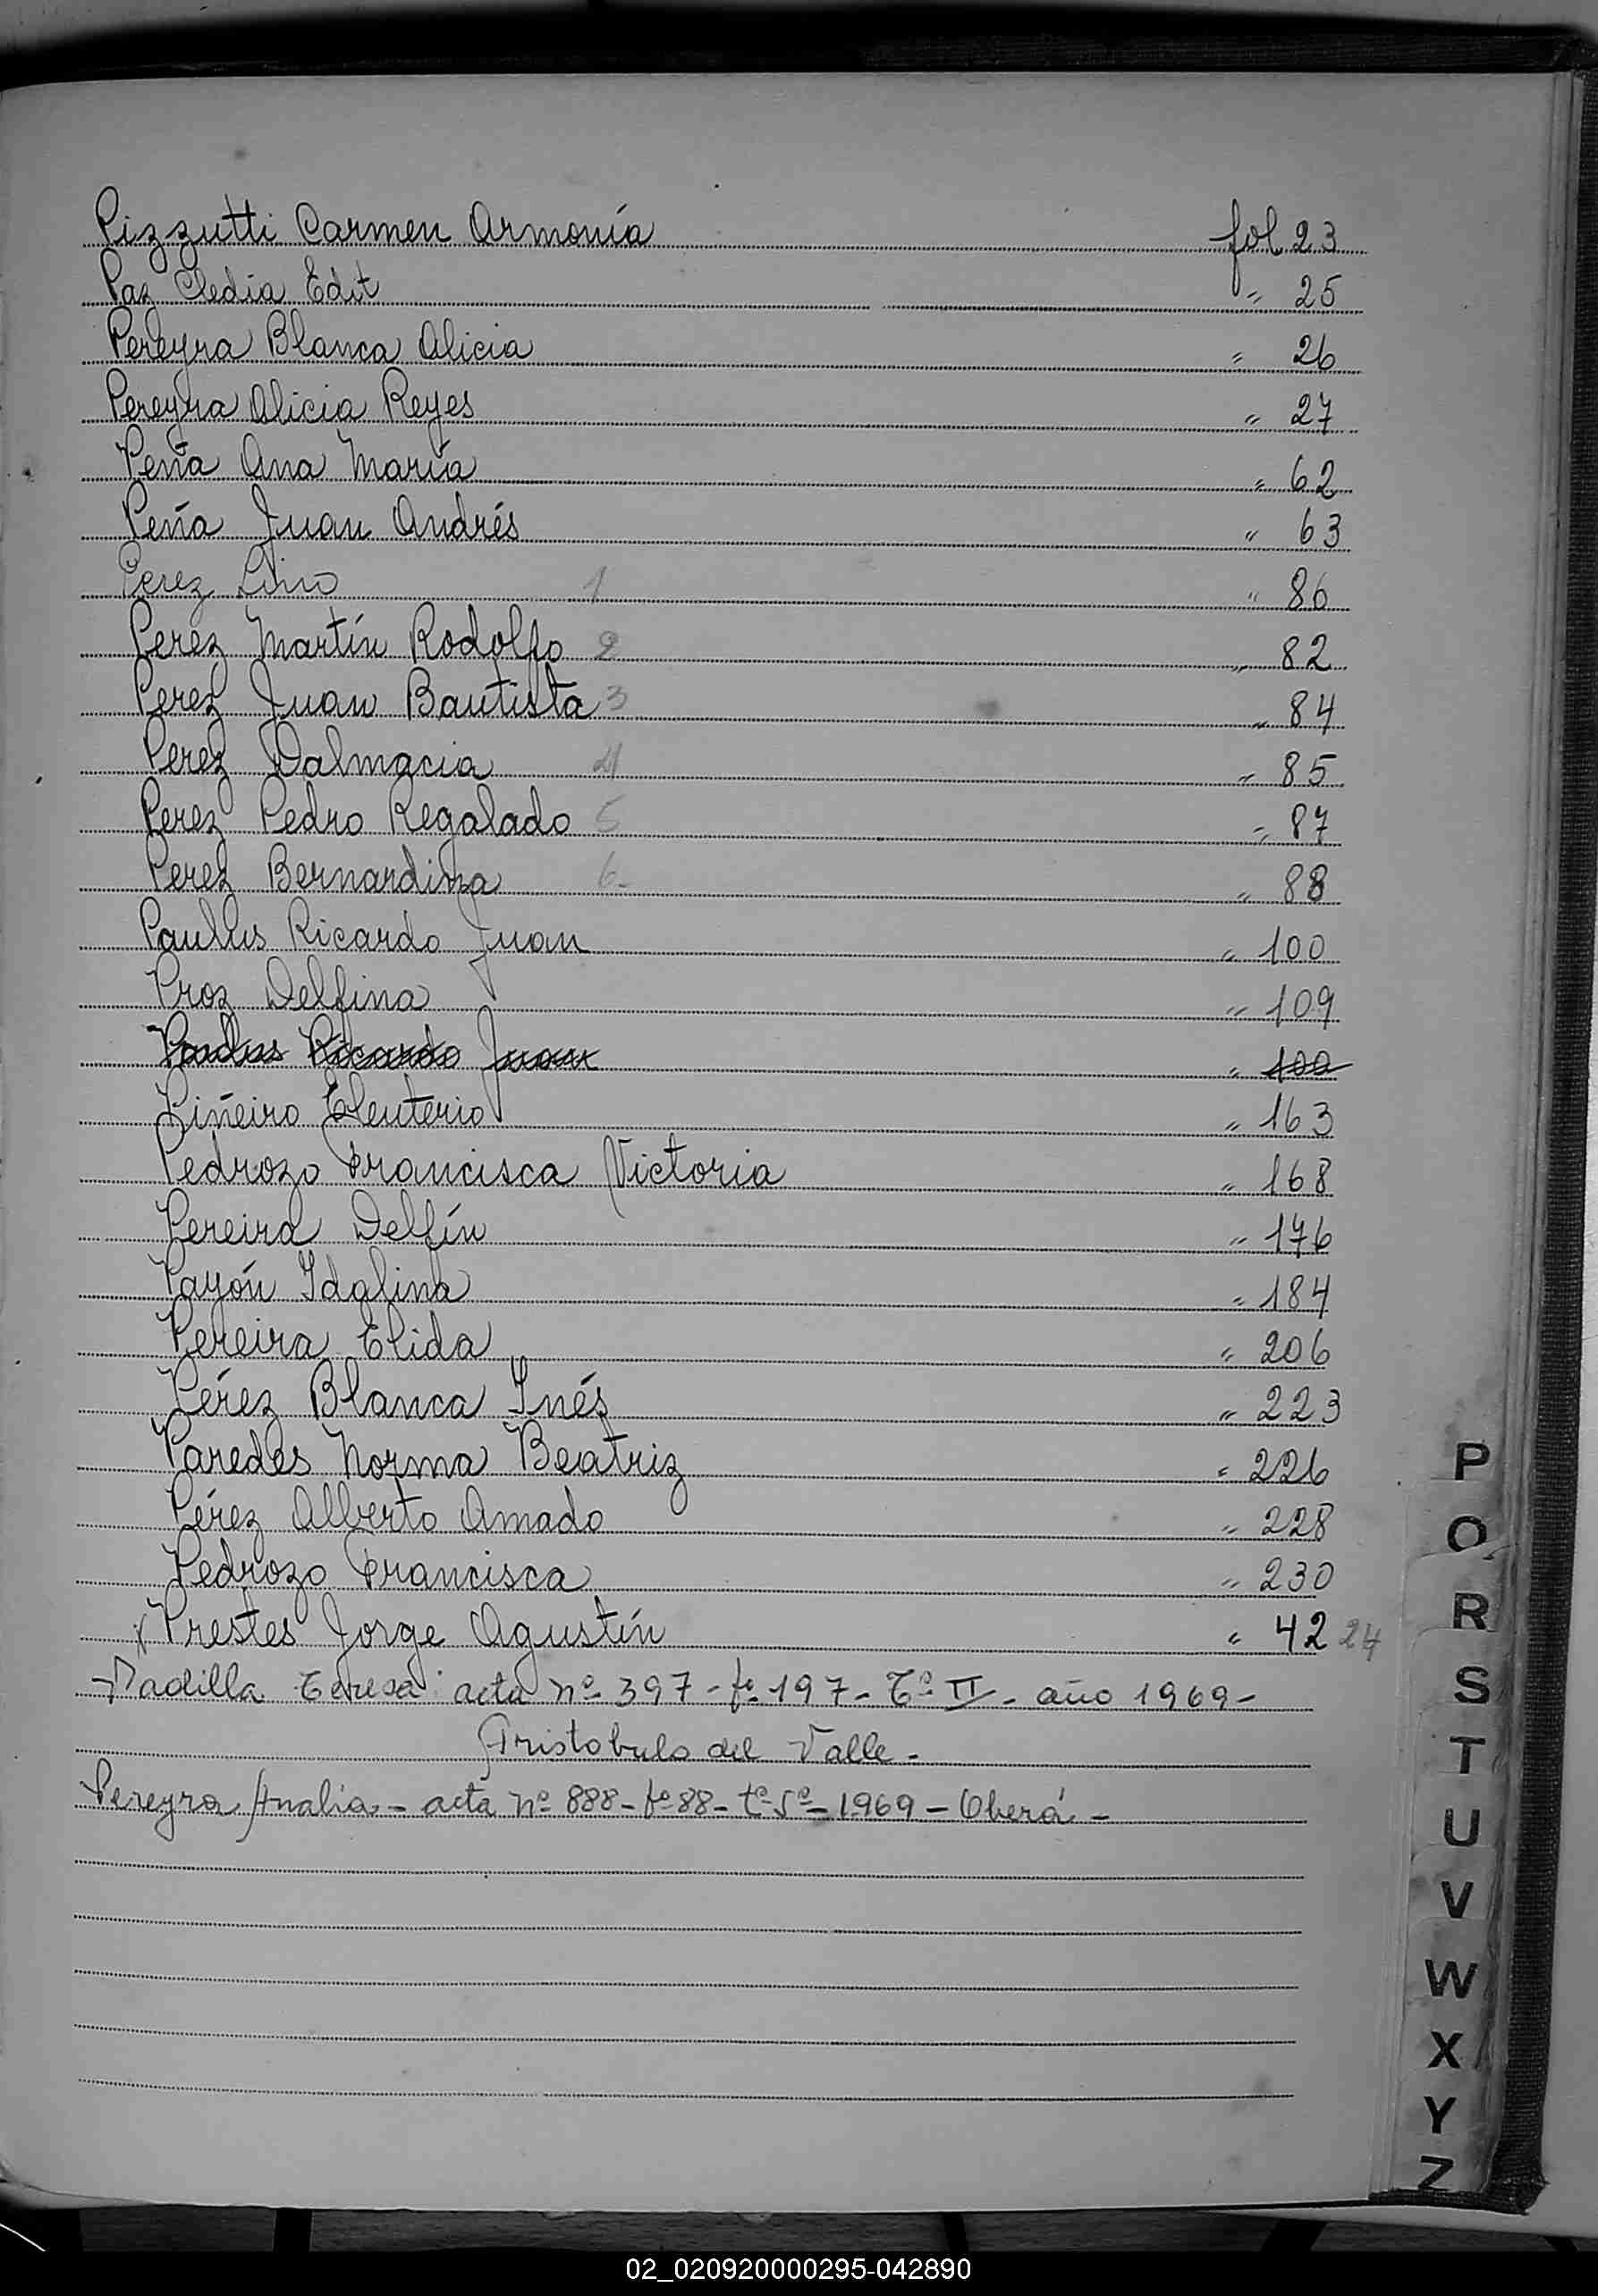 Pizzutti Carmen Armonía fol 23
Paz Cledia Edit " 25
Pereyra Blanca Alicia " 26
Pereyra Alicia Reyes " 27
Peña Ana María " 62
Peña Juan Andrés " 63
Perez Lino 1 " 86
Perez Martín Rodolfo 2 " 82
Perez Juan Bautista 3 " 84
Perez Dalmacia 4 " 85
Perez Pedro Regalado 5 " 87
Perez Bernardina 6- " 88
Paullus Ricardo Juan " 100
Proz Delfina " 109
Paullus Ricardo Juan " 100
Piñeiro Eleuterio " 163
Pedrozo Francisca Victoria " 168
Pereira Delfín " 176
Payón Idalina " 184
Pereira Elida " 206
Pérez Blanca Inés " 223
Paredes Norma Beatriz " 226
Pérez Alberto Amado " 228
Pedrozo Francisca " 230
x Prestes Jorge Agustín " 42 24
Padilla Teresa: acta nº 397 - fº 197 - Tº II - año 1969 -
Aristobulo del Valle -
Pereyra Analia - acta nº 888 - fº 88 - tº 5º - 1969 - Oberá -
P
Q
R
S
T
U
V
W
X
Y
Z
02_020920000295-042890